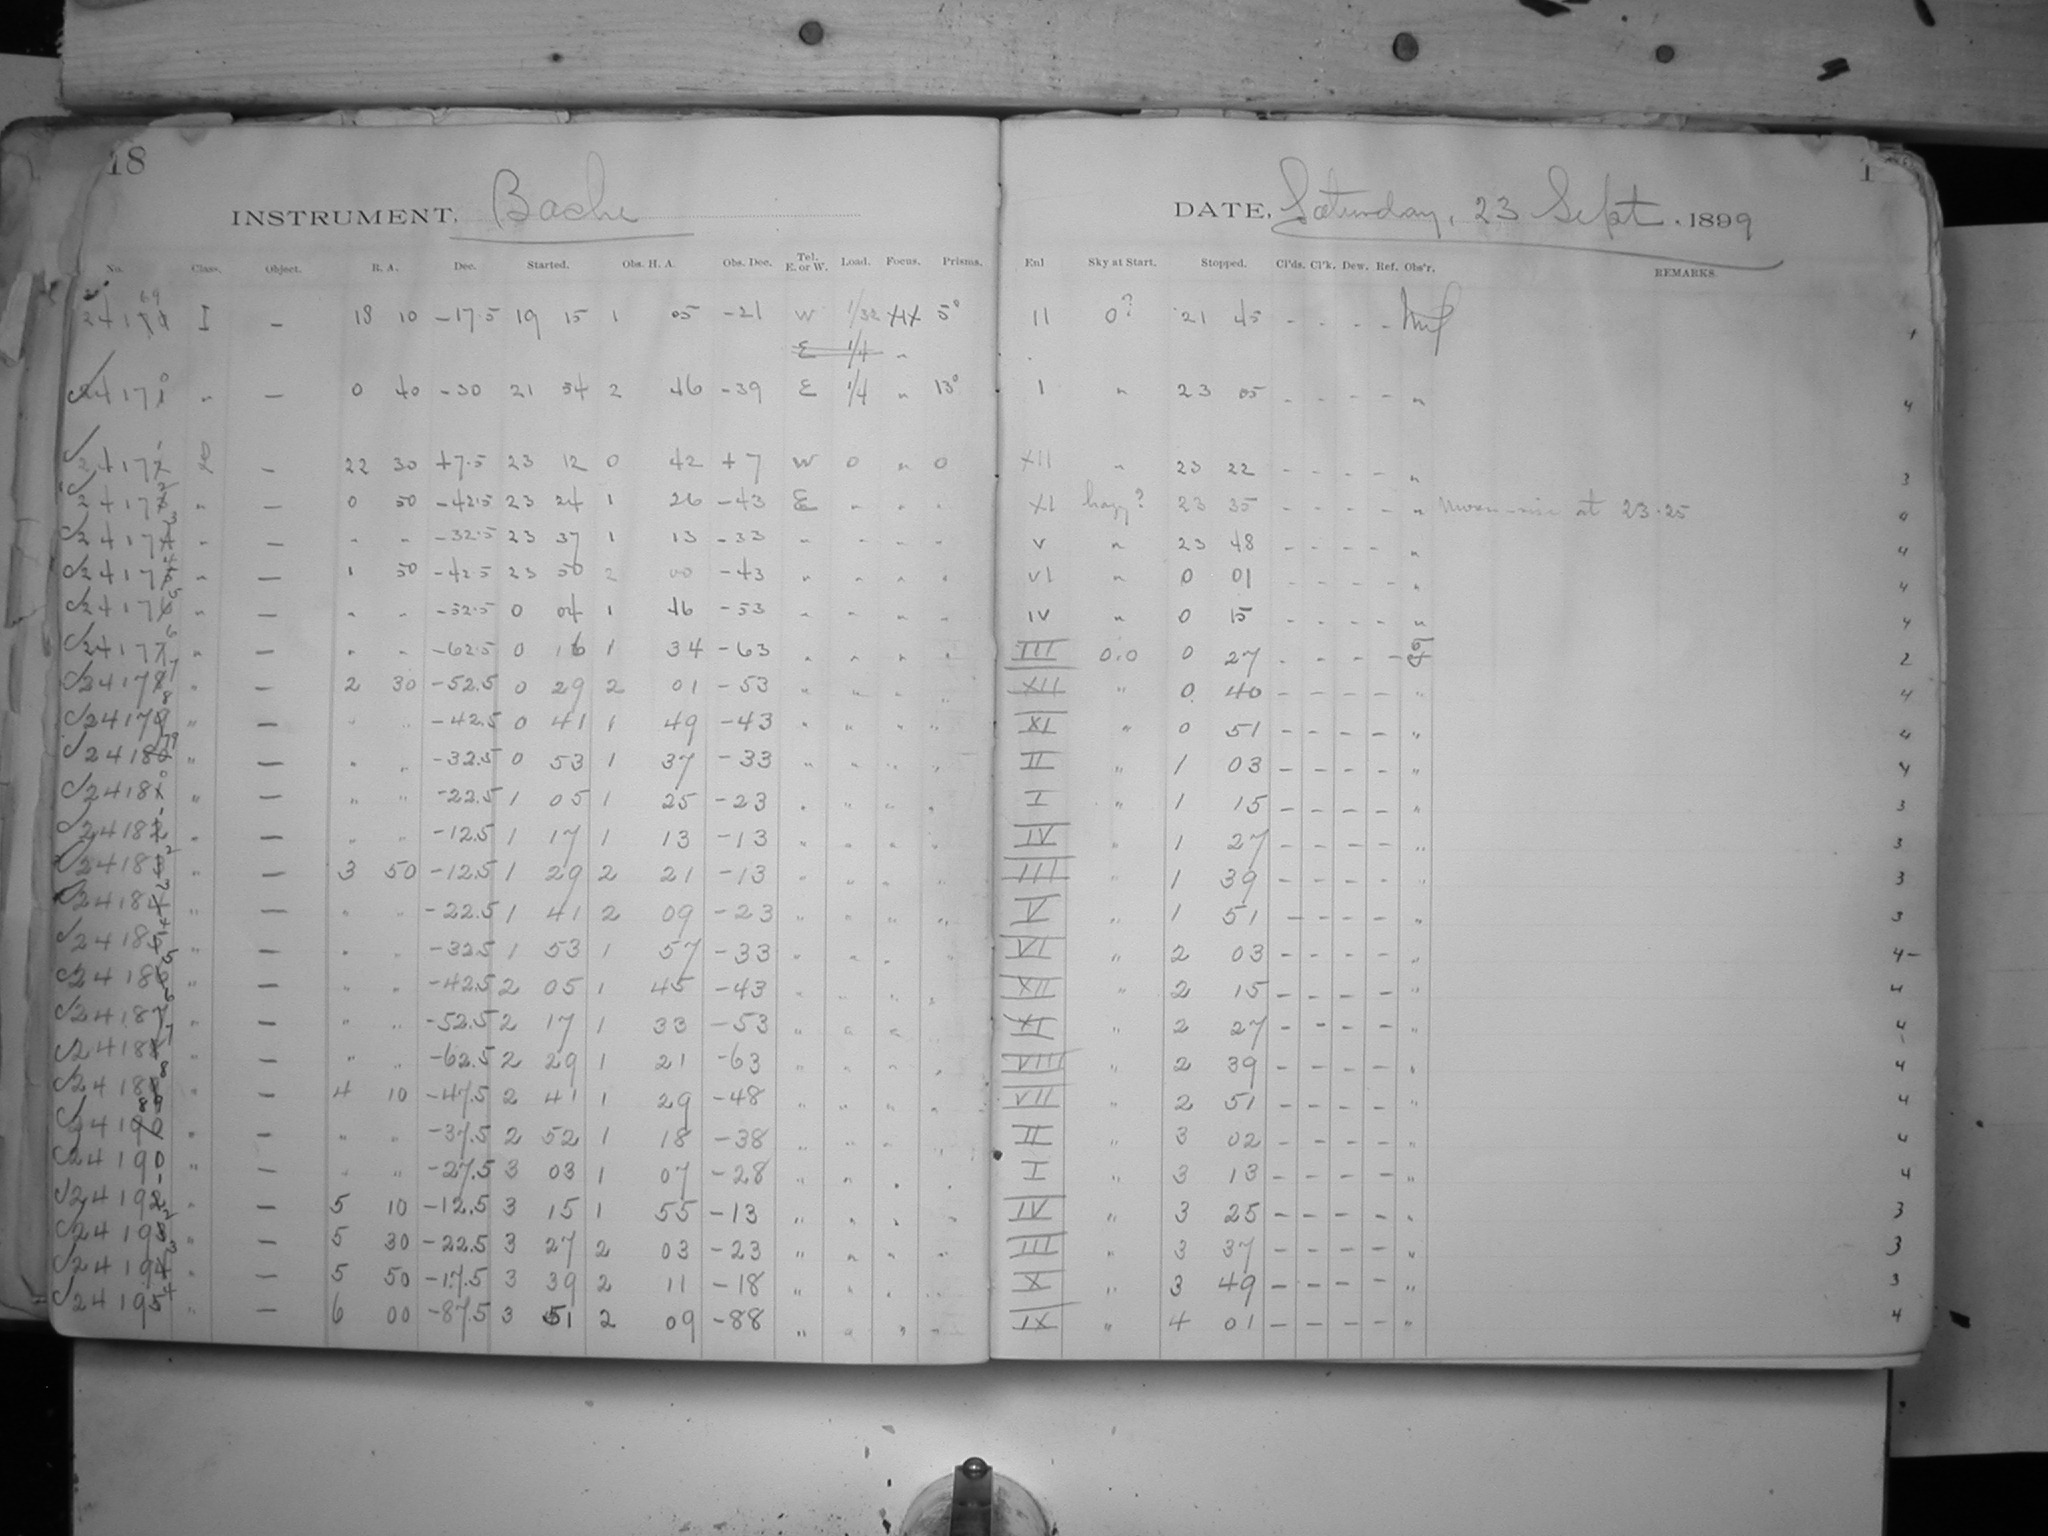 18
INSTRUMENT, Bache DATE, Saturday, 23 Sept. 1899
No. Class. Object. R. A. Dec. Started. Obs. H. A. Obs. Dec. Tel. E. or W. Load. Focus. Prisms. Enl Sky at Start. Stopped. Cl'ds. Cl'k. Dew. Ref. Obs'r. REMARKS.
I - 18 10 -17.5 19 15 1 05 -21 W 1/32 5° II 0? 21 45 - - - - 1
E 1/4 "
24170 " - 0 40 -30 21 54 2 46 -39 E 1/4 " 13° I " 23 05 - - - - " 4
24171 - 22 30 +7.5 23 12 0 42 +7 W 0 " 0 XII " 23 22 - - - - " 3
24172 " - 0 50 -42.5 23 24 1 26 -43 E " " " XI hazy? 23 35 - - - - " Moon-rise at 23.25 4
24173 " - " " -32.5 23 37 1 13 -33 " " " " V " 23 48 - - - - " 4
24174 " - 1 50 -42.5 23 50 2 00 -43 " " " " VI " 0 01 - - - - " 4
24175 " - " " -52.5 0 04 1 46 -53 " " " " IV " 0 15 - - - - " 4
24176 " - " " -62.5 0 16 1 34 -63 " " " " III 0.0 0 27 - - - - 2
24177 " - 2 30 -52.5 0 29 2 01 -53 " " " " XII " 0 40 - - - - " 4
24178 " - " " -42.5 0 41 1 49 -43 " " " " XI " 0 51 - - - - " 4
24179 " - " " -32.5 0 53 1 37 -33 " " " " II " 1 03 - - - - " 4
24180 " - " " -22.5 1 05 1 25 -23 " " " " I " 1 15 - - - - " 3
24181 " - " " -12.5 1 17 1 13 -13 " " " " IV " 1 27 - - - - " 3
24182 " - 3 50 -12.5 1 29 2 21 -13 " " " " III " 1 39 - - - - " 3
24183 " - " " -22.5 1 41 2 09 -23 " " " " V " 1 51 - - - - " 3
24184 " - " " -32.5 1 53 1 57 -33 " " " " VI " 2 03 - - - - " 4-
24185 " - " " -42.5 2 05 1 45 -43 " " " " XII " 2 15 - - - - " 4
24186 " - " " -52.5 2 17 1 33 -53 " " " " XI " 2 27 - - - - " 4
24187 " - " " -62.5 2 29 1 21 -63 " " " " VIII " 2 39 - - - - " 4
24188 " - 4 10 -47.5 2 41 1 29 -48 " " " " VII " 2 51 - - - - " 4
24189 " - " " -37.5 2 52 1 18 -38 " " " " II " 3 02 - - - - " 4
24190 " - " " -27.5 3 03 1 07 -28 " " " " I " 3 13 - - - - " 4
24191 " - 5 10 -12.5 3 15 1 55 -13 " " " " IV " 3 25 - - - - " 3
24192 " - 5 30 -22.5 3 27 2 03 -23 " " " " III " 3 37 - - - - " 3
24193 " - 5 50 -17.5 3 39 2 11 -18 " " " " X " 3 49 - - - - " 3
24194 " - 6 00 -87.5 3 51 2 09 -88 " " " " IX " 4 01 - - - - " 4